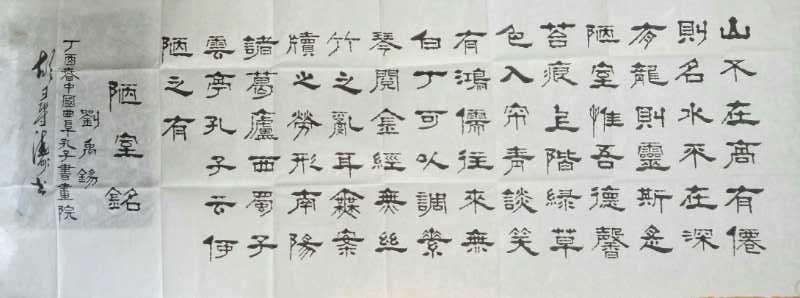 山不在高有僊
則名水不在深
有龍則靈斯是
陋室惟吾德馨
苔痕上階綠草
色入帘青談笑
有鴻儒往來無
白丁可以調素
琴閱金經無絲
竹之亂耳無案
牘之勞形南陽
諸葛廬西蜀子
雲亭孔子云何
陋之有
陋室銘
劉禹錫
丁酉春中國曲阜孔子書畫院
書